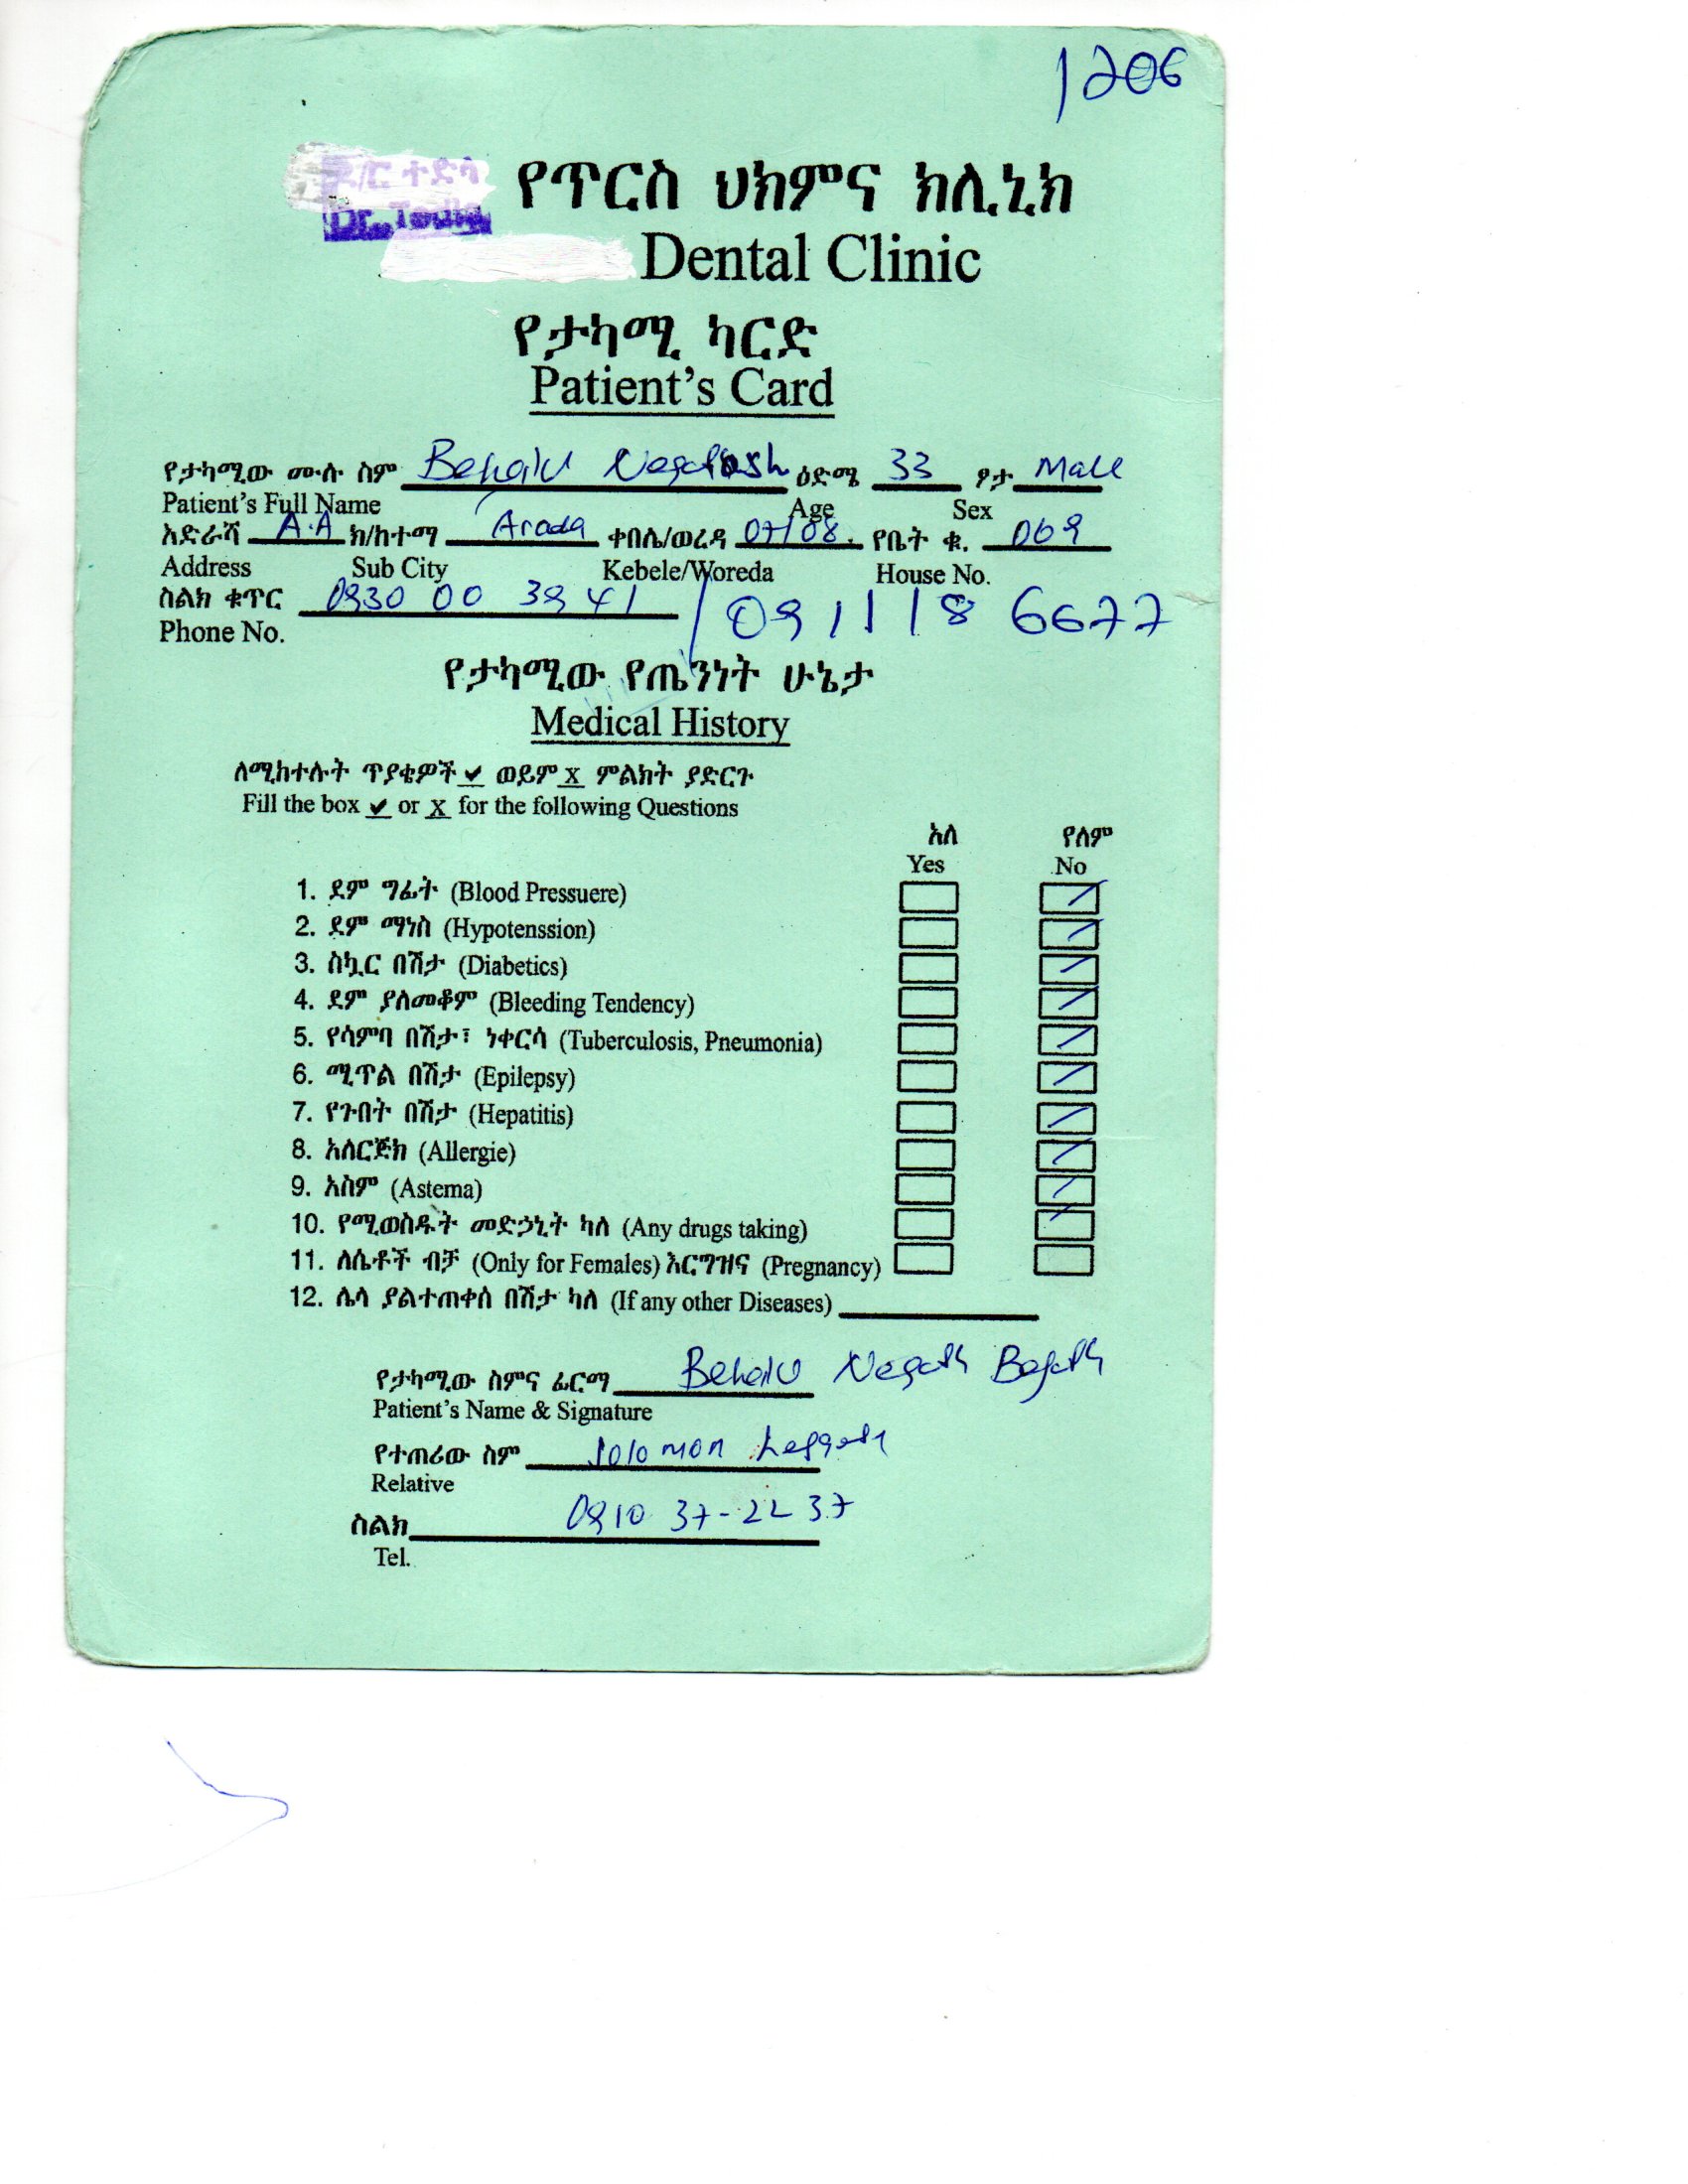 1206
ዶ/ር ተድላ የጥርስ ህክምና ክሊኒክ
Dr. Tedla Dental Clinic
የታካሚ ካርድ
Patient's Card
የታካሚው ሙሉ ስም Behailu ዕድሜ 33 ፆታ Male
Patient's Full Name Age Sex
አድራሻ A.A ክ/ከተማ Arada ቀበሌ/ወረዳ 07/08. የቤት ቁ. 069
Address Sub City Kebele/Woreda House No.
ስልክ ቁጥር 0930 00 39 41 / 0911186677
Phone No.
የታካሚው የጤንነት ሁኔታ
Medical History
ለሚከተሉት ጥያቄዎች ✔ ወይም X ምልክት ያድርጉ
Fill the box ✔ or X for the following Questions
አለ የለም
Yes No
1. ደም ግፊት (Blood Pressuere)
2. ደም ማነስ (Hypotenssion)
3. ስኳር በሽታ (Diabetics)
4. ደም ያለመቆም (Bleeding Tendency)
5. የሳምባ በሽታ፣ ነቀርሳ (Tuberculosis, Pneumonia)
6. ሚጥል በሽታ (Epilepsy)
7. የጉበት በሽታ (Hepatitis)
8. አለርጅክ (Allergie)
9. አስም (Astema)
10. የሚወስዱት መድኃኒት ካለ (Any drugs taking)
11. ለሴቶች ብቻ (Only for Females) እርግዝና (Pregnancy)
12. ሌላ ያልተጠቀሰ በሽታ ካለ (If any other Diseases)
የታካሚው ስምና ፊርማ Behailu
Patient's Name & Signature
የተጠሪው ስም Solomon
Relative
ስልክ 0910 37-22 37
Tel.